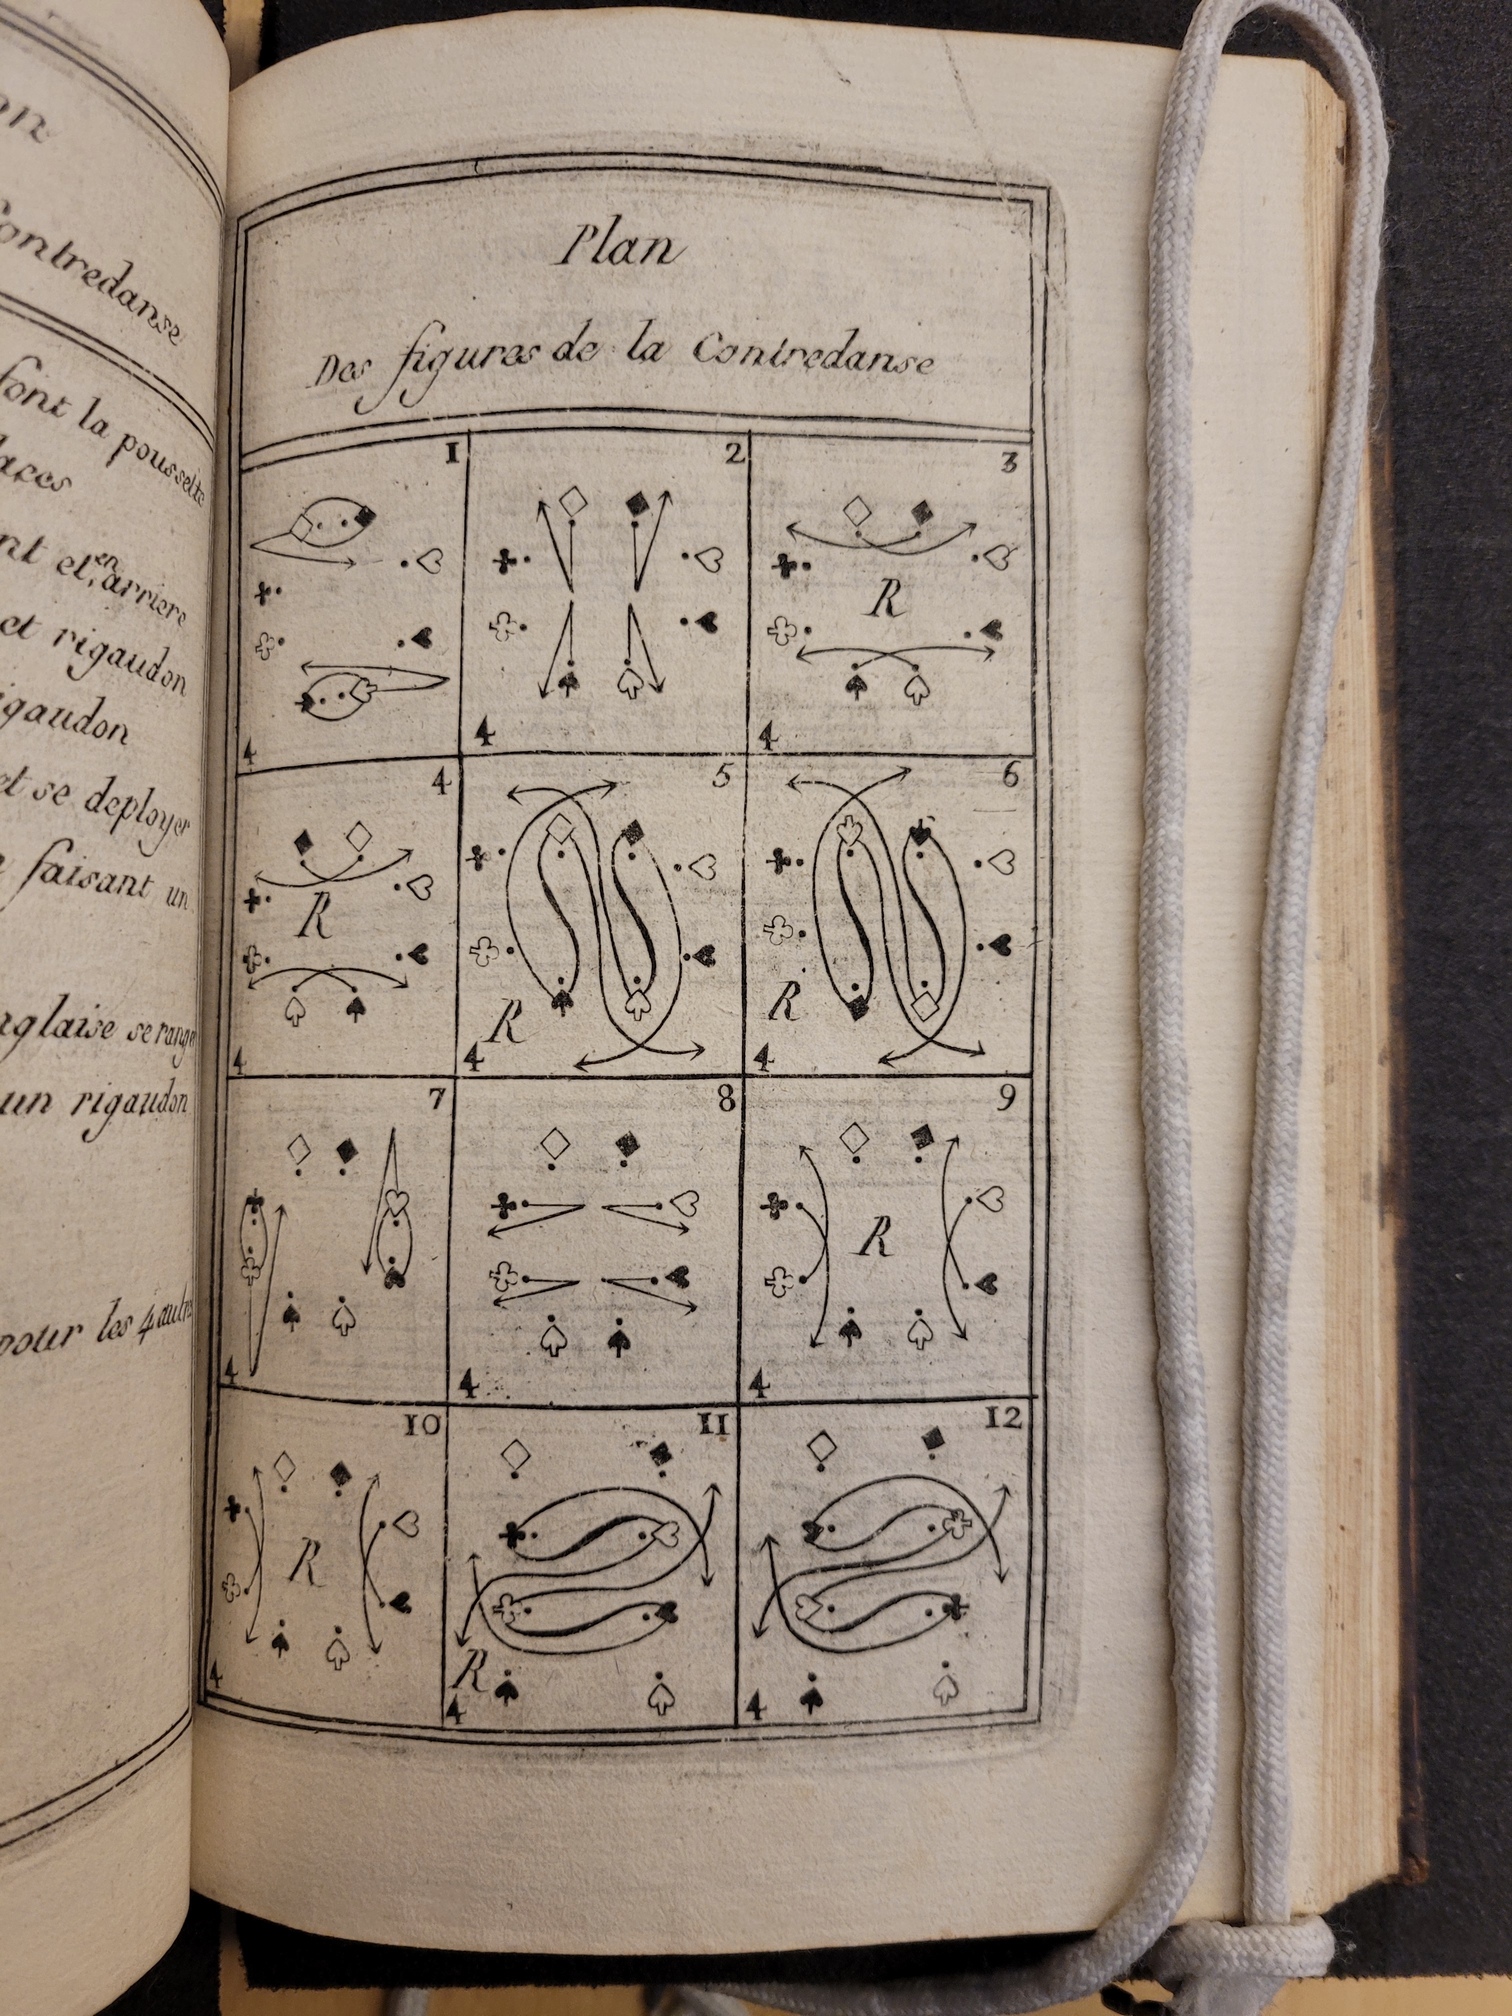 on
Contredanse
font la poussette
laces
nt et en arriere
et rigaudon
rigaudon
et se deployer
faisant un
nglaise se range
un rigaudon
pour les 4 autres
Plan
Des figures de la Contredanse
1 2 3
R
4 4 4
4 5 6
R R R
4 4 4
7 8 9
R
4 4 4
10 11 12
R R
4 4 4